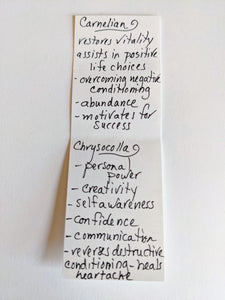 Carnelian
restores vitality
assists in positive
life choices
- overcoming negative
conditioning
- abundance
- motivates for
success
Chrysocolla
- personal
power
- creativity
- self awareness
- confidence
- communication
- reverses destructive
conditioning - heals
heartache